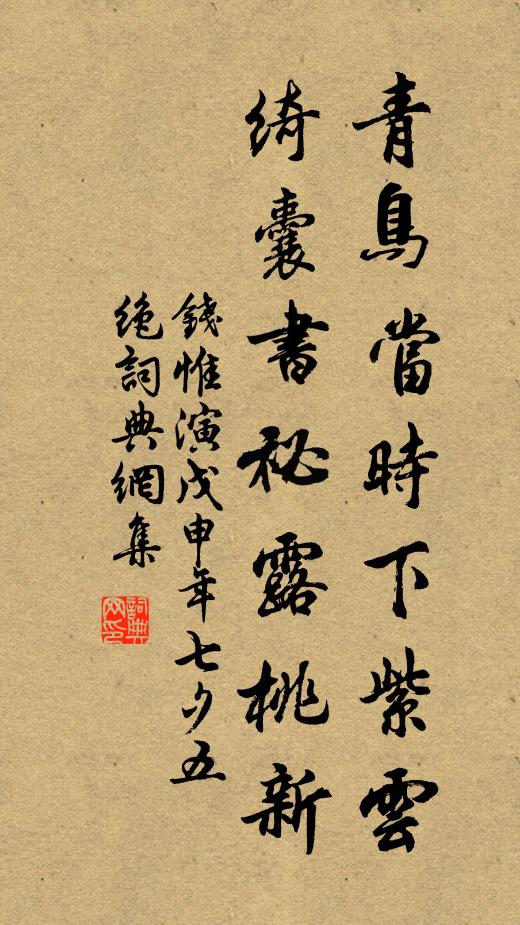 青鳥當時下紫雲
綺囊書祕露桃新
錢惟演戊申年七夕五
絶詞典網集
詞典
网印